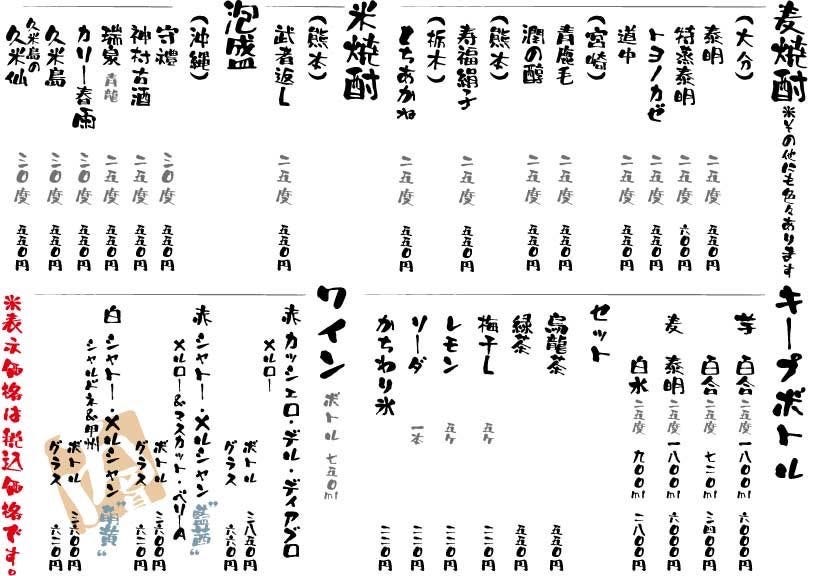 麦焼酎 ※その他にも色々あります
(大分)
泰明 二五度 五五〇円
特蒸泰明 二五度 六〇〇円
トヨノカゼ 二五度 五五〇円
道中 二五度 五五〇円
(宮崎)
青鹿毛 二五度 五五〇円
潤の醇 二五度 五五〇円
(熊本)
寿福絹子 二五度 五五〇円
(栃木)
とちあかね 二五度 五五〇円
米焼酎
(熊本)
武者返し 二五度 五五〇円
泡盛
(沖縄)
守禮 三〇度 五五〇円
神村古酒 二五度 五五〇円
瑞泉 青龍 二五度 五五〇円
カリー春雨 三〇度 五五〇円
久米島 三〇度 五五〇円
久米島の
久米仙 三〇度 五五〇円
キープボトル
芋 百合 二五度 一八〇〇ml 六〇〇〇円
百合 二五度 七二〇ml 三四〇〇円
麦 泰明 二五度 一八〇〇ml 六〇〇〇円
白水 二五度 九〇〇ml 二八〇〇円
セット
烏龍茶 五五〇円
緑茶 五五〇円
梅干し 五ケ 二二〇円
レモン 五ケ 二二〇円
ソーダ 一本 二二〇円
かちわり氷 二二〇円
ワイン ボトル 七五〇ml
赤 カッシェロ・デル・ディアブロ
メルロー
ボトル 三八五〇円
グラス 六六〇円
赤 シャトー・メルシャン"藍茜"
メルロー&マスカット・ベリーA
ボトル 三六〇〇円
グラス 六二〇円
白 シャトー・メルシャン"萌黄"
シャルドネ&甲州
ボトル 三六〇〇円
グラス 六二〇円
※表示価格は税込価格です。